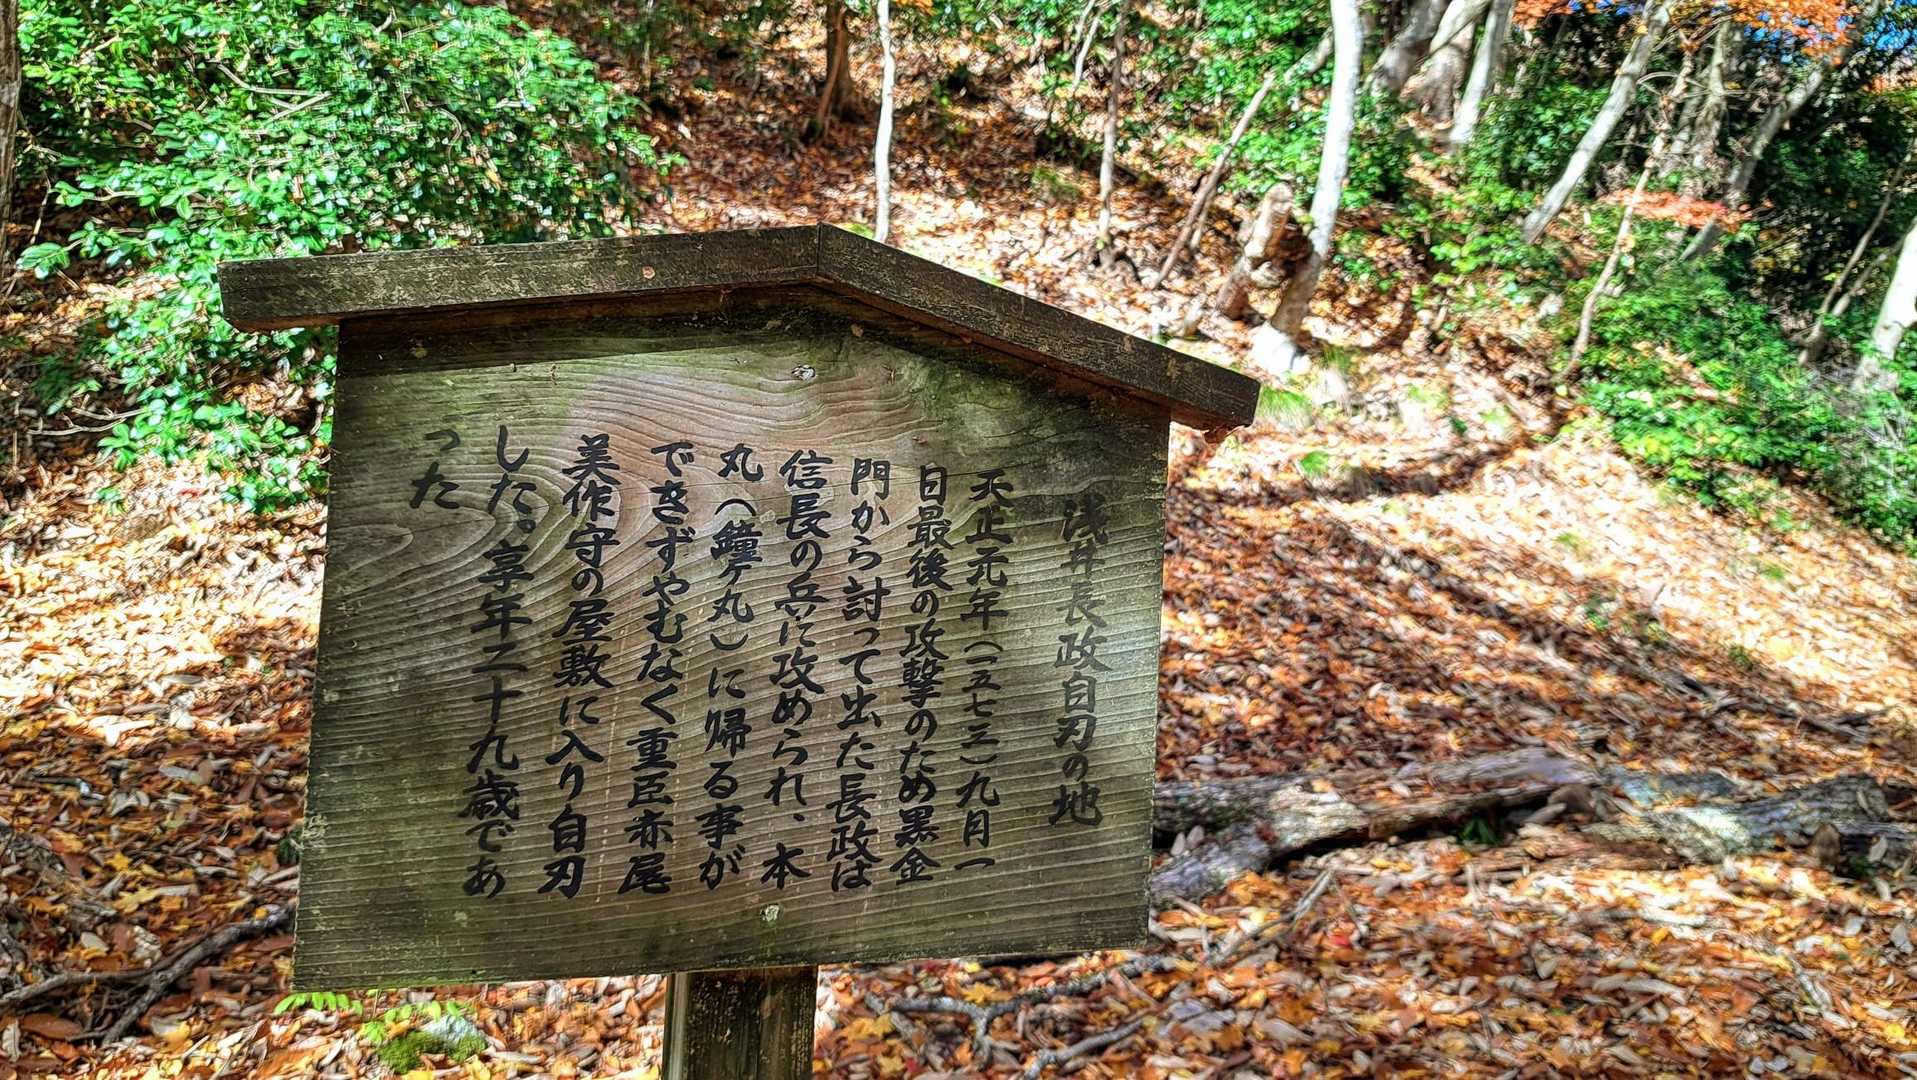 浅井長政自刃の地
天正元年（一五七三）九月一
日最後の攻撃のため黒金
門から討って出た長政は
信長の兵に攻められ、本
丸（鐘ヶ丸）に帰る事が
できずやむなく重臣赤尾
美作守の屋敷に入り自刃
した。享年二十九歳であ
った